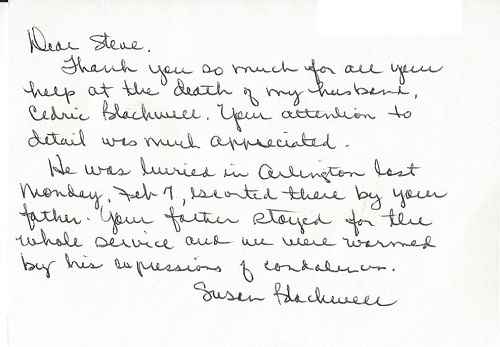 Dear Steve.
Thank you so much for all your
help at the death of my husband,
Cedric Blackwell. Your attention to
detail was much appreciated.
He was buried in Arlington last
Monday, Feb 7, escorted there by your
father. Your father stayed for the
whole service and we were warmed
by his expressions of condolences.
Susan Blackwell